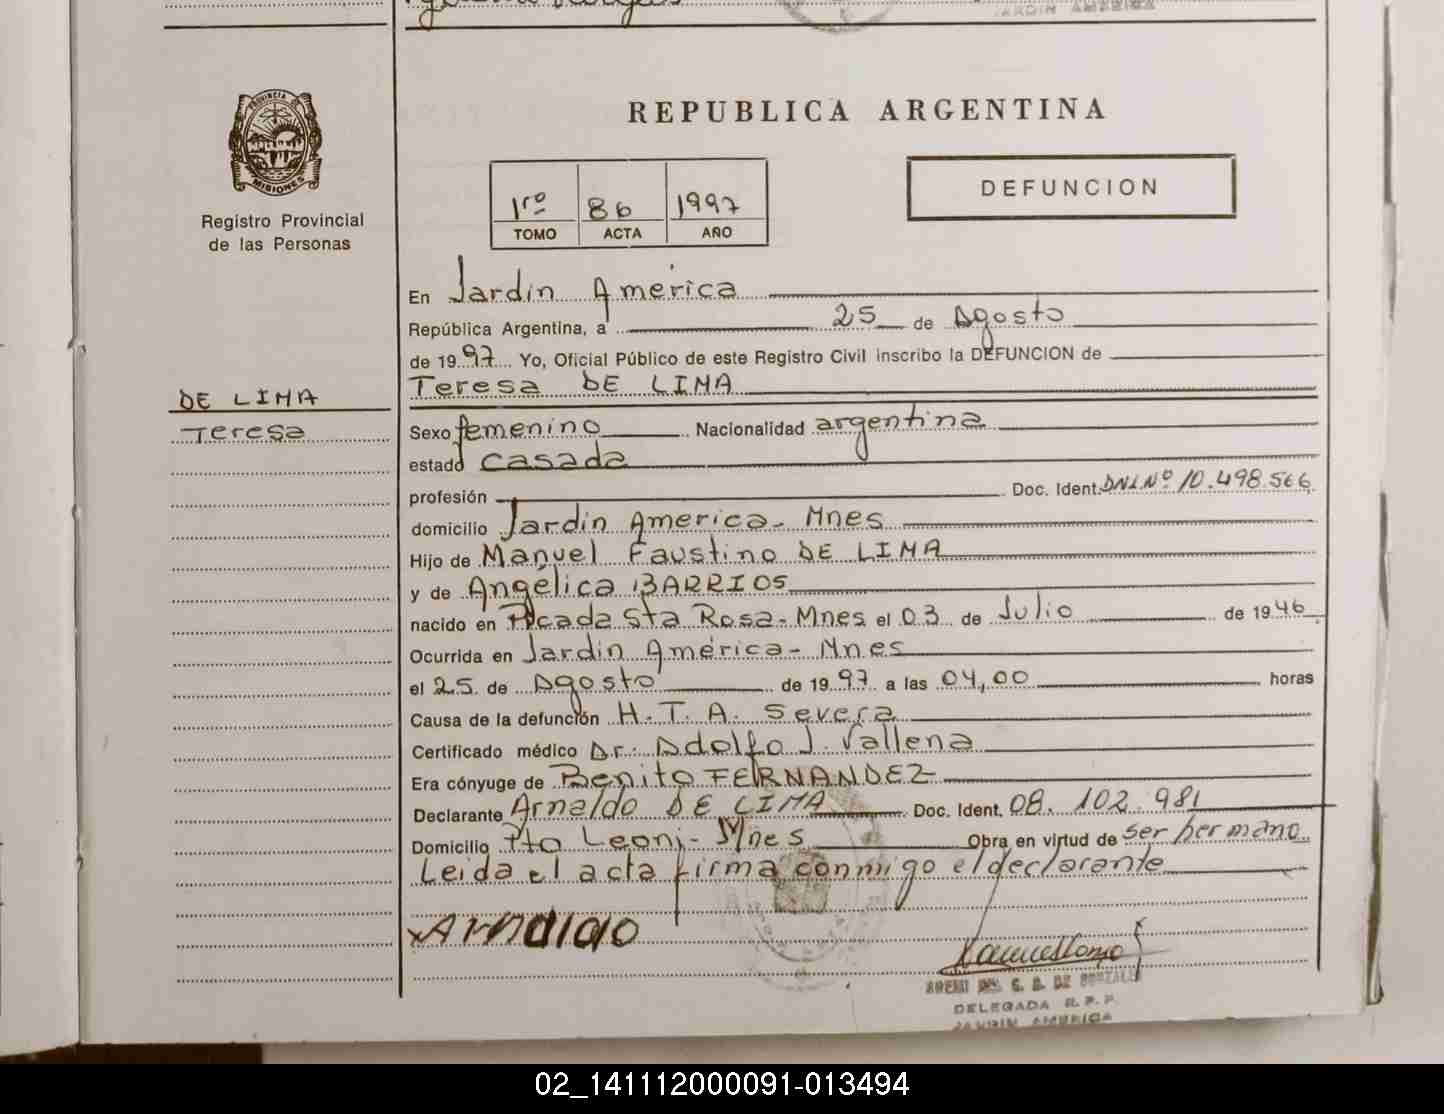 JARDIN AMERICA
PROVINCIA DE
MISIONES
Registro Provincial
de las Personas
REPUBLICA ARGENTINA
DEFUNCION
1ro 86 1997
TOMO ACTA AÑO
En Jardin América
República Argentina, a 25 de Agosto
de 1997 Yo, Oficial Público de este Registro Civil inscribo la DEFUNCION de
Teresa DE LIMA
DE LIMA
Teresa
Sexo femenino Nacionalidad argentina
estado casada
profesión Doc. Ident. DNI.Nº 10.498.566
domicilio Jardin America- Mnes
Hijo de Manuel Faustino DE LIMA
y de Angélica BARRIOS
nacido en Picada Sta Rosa- Mnes el 03 de Julio de 1946
Ocurrida en Jardin América- Mnes
el 25 de Agosto de 1997 a las 04,00 horas
Causa de la defunción H. T. A. Severa
Certificado médico Dr: Adolfo J. Vallena
Era cónyuge de Benito FERNANDEZ
Declarante Arnaldo DE LIMA Doc. Ident. 08. 102. 981
Domicilio Pto Leoni- Mnes Obra en virtud de ser hermano
Leida el acta firma conmigo el declarante
DELEGADA R. P. P.
JARDIN AMERICA
02_141112000091-013494